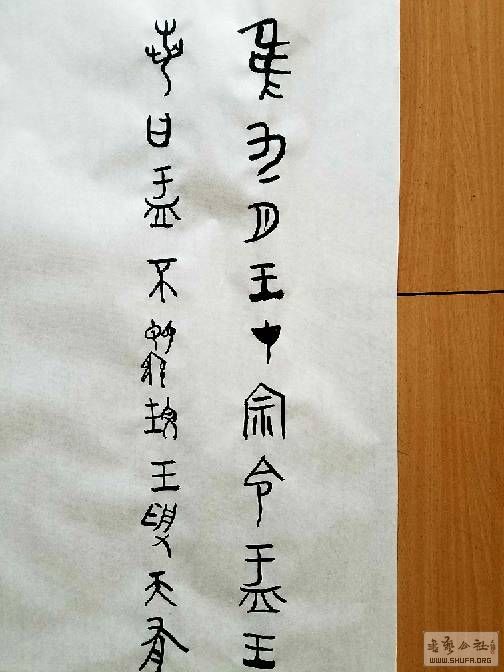 隹九月王才宗令盂王
若曰盂不顯玟王受天有
书艺公社
WWW.SHUFA.ORG